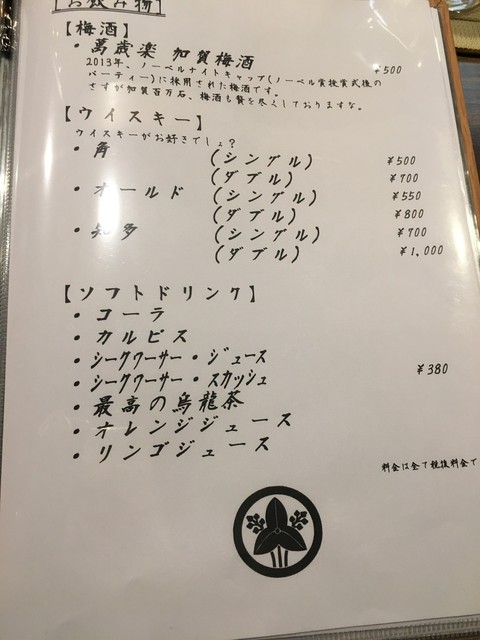 【お飲み物】
【梅酒】
・萬歳楽 加賀梅酒 ¥500
2013年、ノーベルナイトキャップ(ノーベル賞授賞式後の
パーティー)に採用された梅酒です。
さすが加賀百万石、梅酒も贅を尽くしておりますな。
【ウイスキー】
ウイスキーがお好きでしょ?
・角 (シングル) ¥500
(ダブル) ¥700
・オールド (シングル) ¥550
(ダブル) ¥800
・知多 (シングル) ¥700
(ダブル) ¥1,000
【ソフトドリンク】
・コーラ
・カルピス
・シークワーサー・ジュース
・シークワーサー・スカッシュ ¥380
・最高の烏龍茶
・オレンジジュース
・リンゴジュース
料金は全て税抜料金で